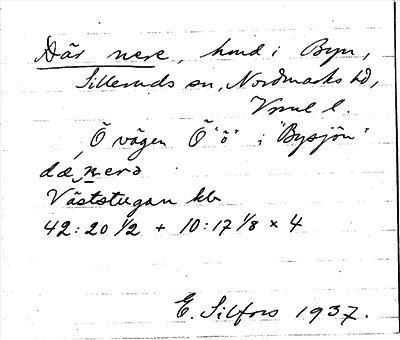 Där nere, hmd i Byn,
Silleruds sn, Nordmarks hd,
Vrml l.
Õ vägen Õ "õ" i "Bysjön"
dæ, nerə
Väststugan kb
42:20 1/2 + 10:17 1/8 × 4
E. Silfors 1937.